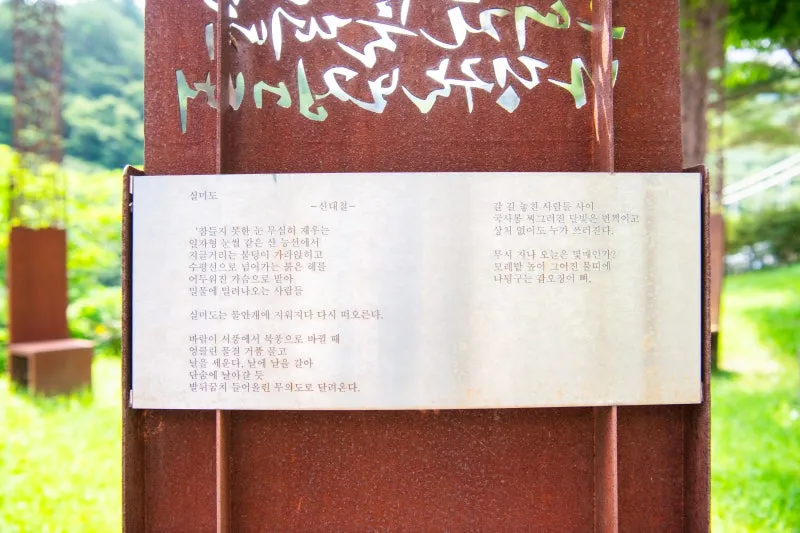 실미도
-신대철-
잠들지 못한 눈 무심히 재우는
일자형 눈썹 같은 산 능선에서
지글거리는 불덩이 가라앉히고
수평선으로 넘어가는 붉은 해를
어두워진 가슴으로 받아
밀물에 밀려나오는 사람들
실미도는 물안개에 지워지다 다시 떠오른다.
바람이 서풍에서 북풍으로 바뀔 때
엉클린 물결 거품 물고
날을 세운다. 날에 날을 갈아
단숨에 날아갈 듯
발뒤꿈치 들어올린 무의도로 달려온다.
갈 길 놓친 사람들 사이
국사봉 찌그러진 달빛은 번쩍이고
상처 없이도 누가 쓰러진다.
무시 지나 오늘은 몇매인가?
모래밭 높이 그어진 물띠에
나뒹구는 갑오징어 뼈.